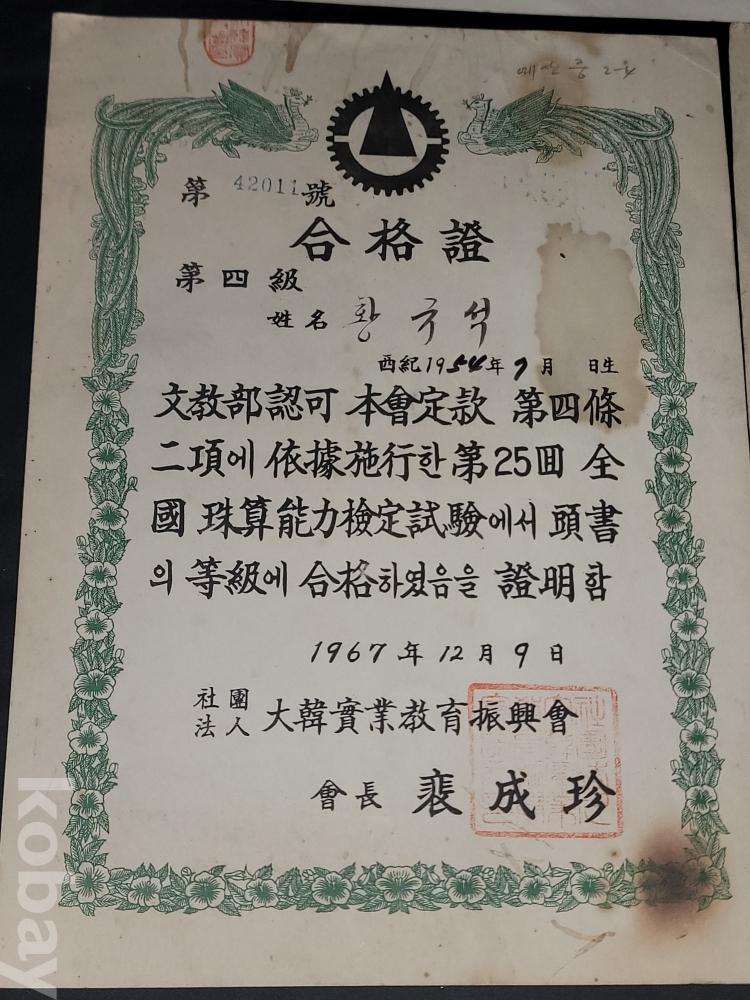 第 42011 號
合格證
第四級
姓名 황규석
西紀1954年9月 日生
文教部認可 本會定款 第四條
二項에 依據施行한 第25回 全
國 珠算能力檢定試驗에서 頭書
의 等級에 合格하였음을 證明함
1967年12月9日
社團
法人 大韓實業教育振興會
會長 裵成珍
kobay